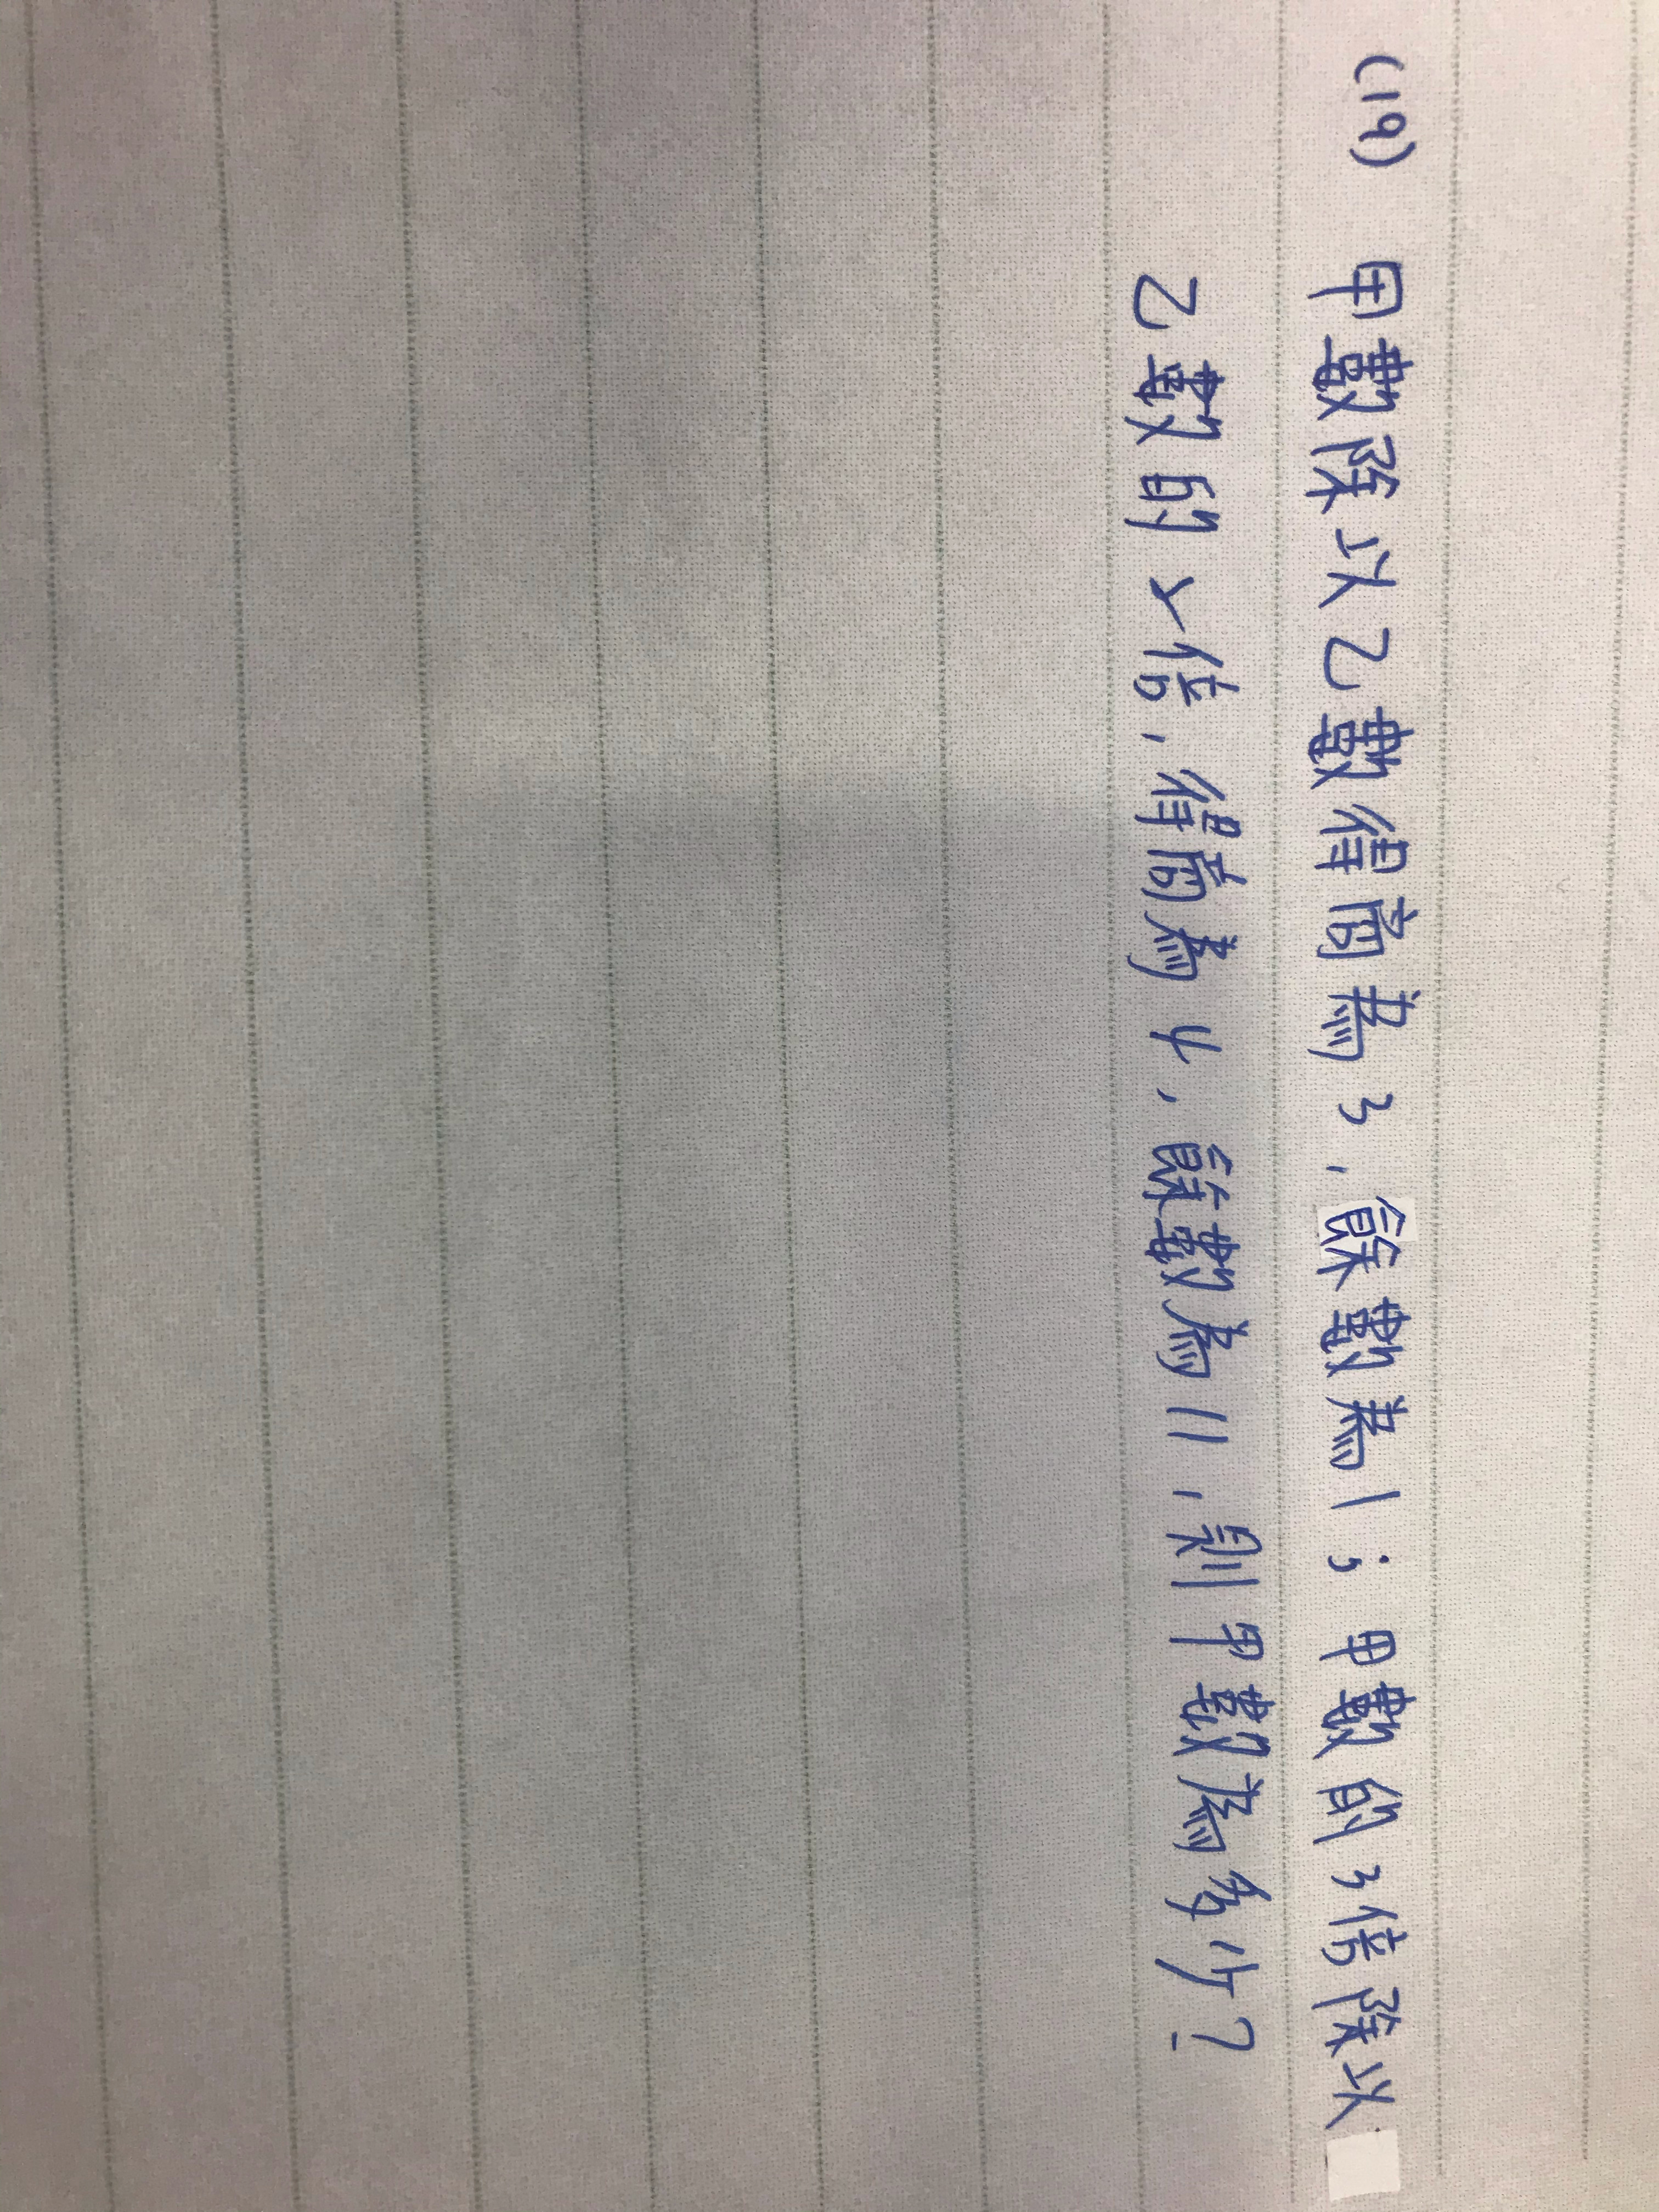 (19) 甲數除以乙數得商為3，餘數為1；甲數的3倍除以
乙數的2倍，得商為4，餘數為11，則甲數為多少？